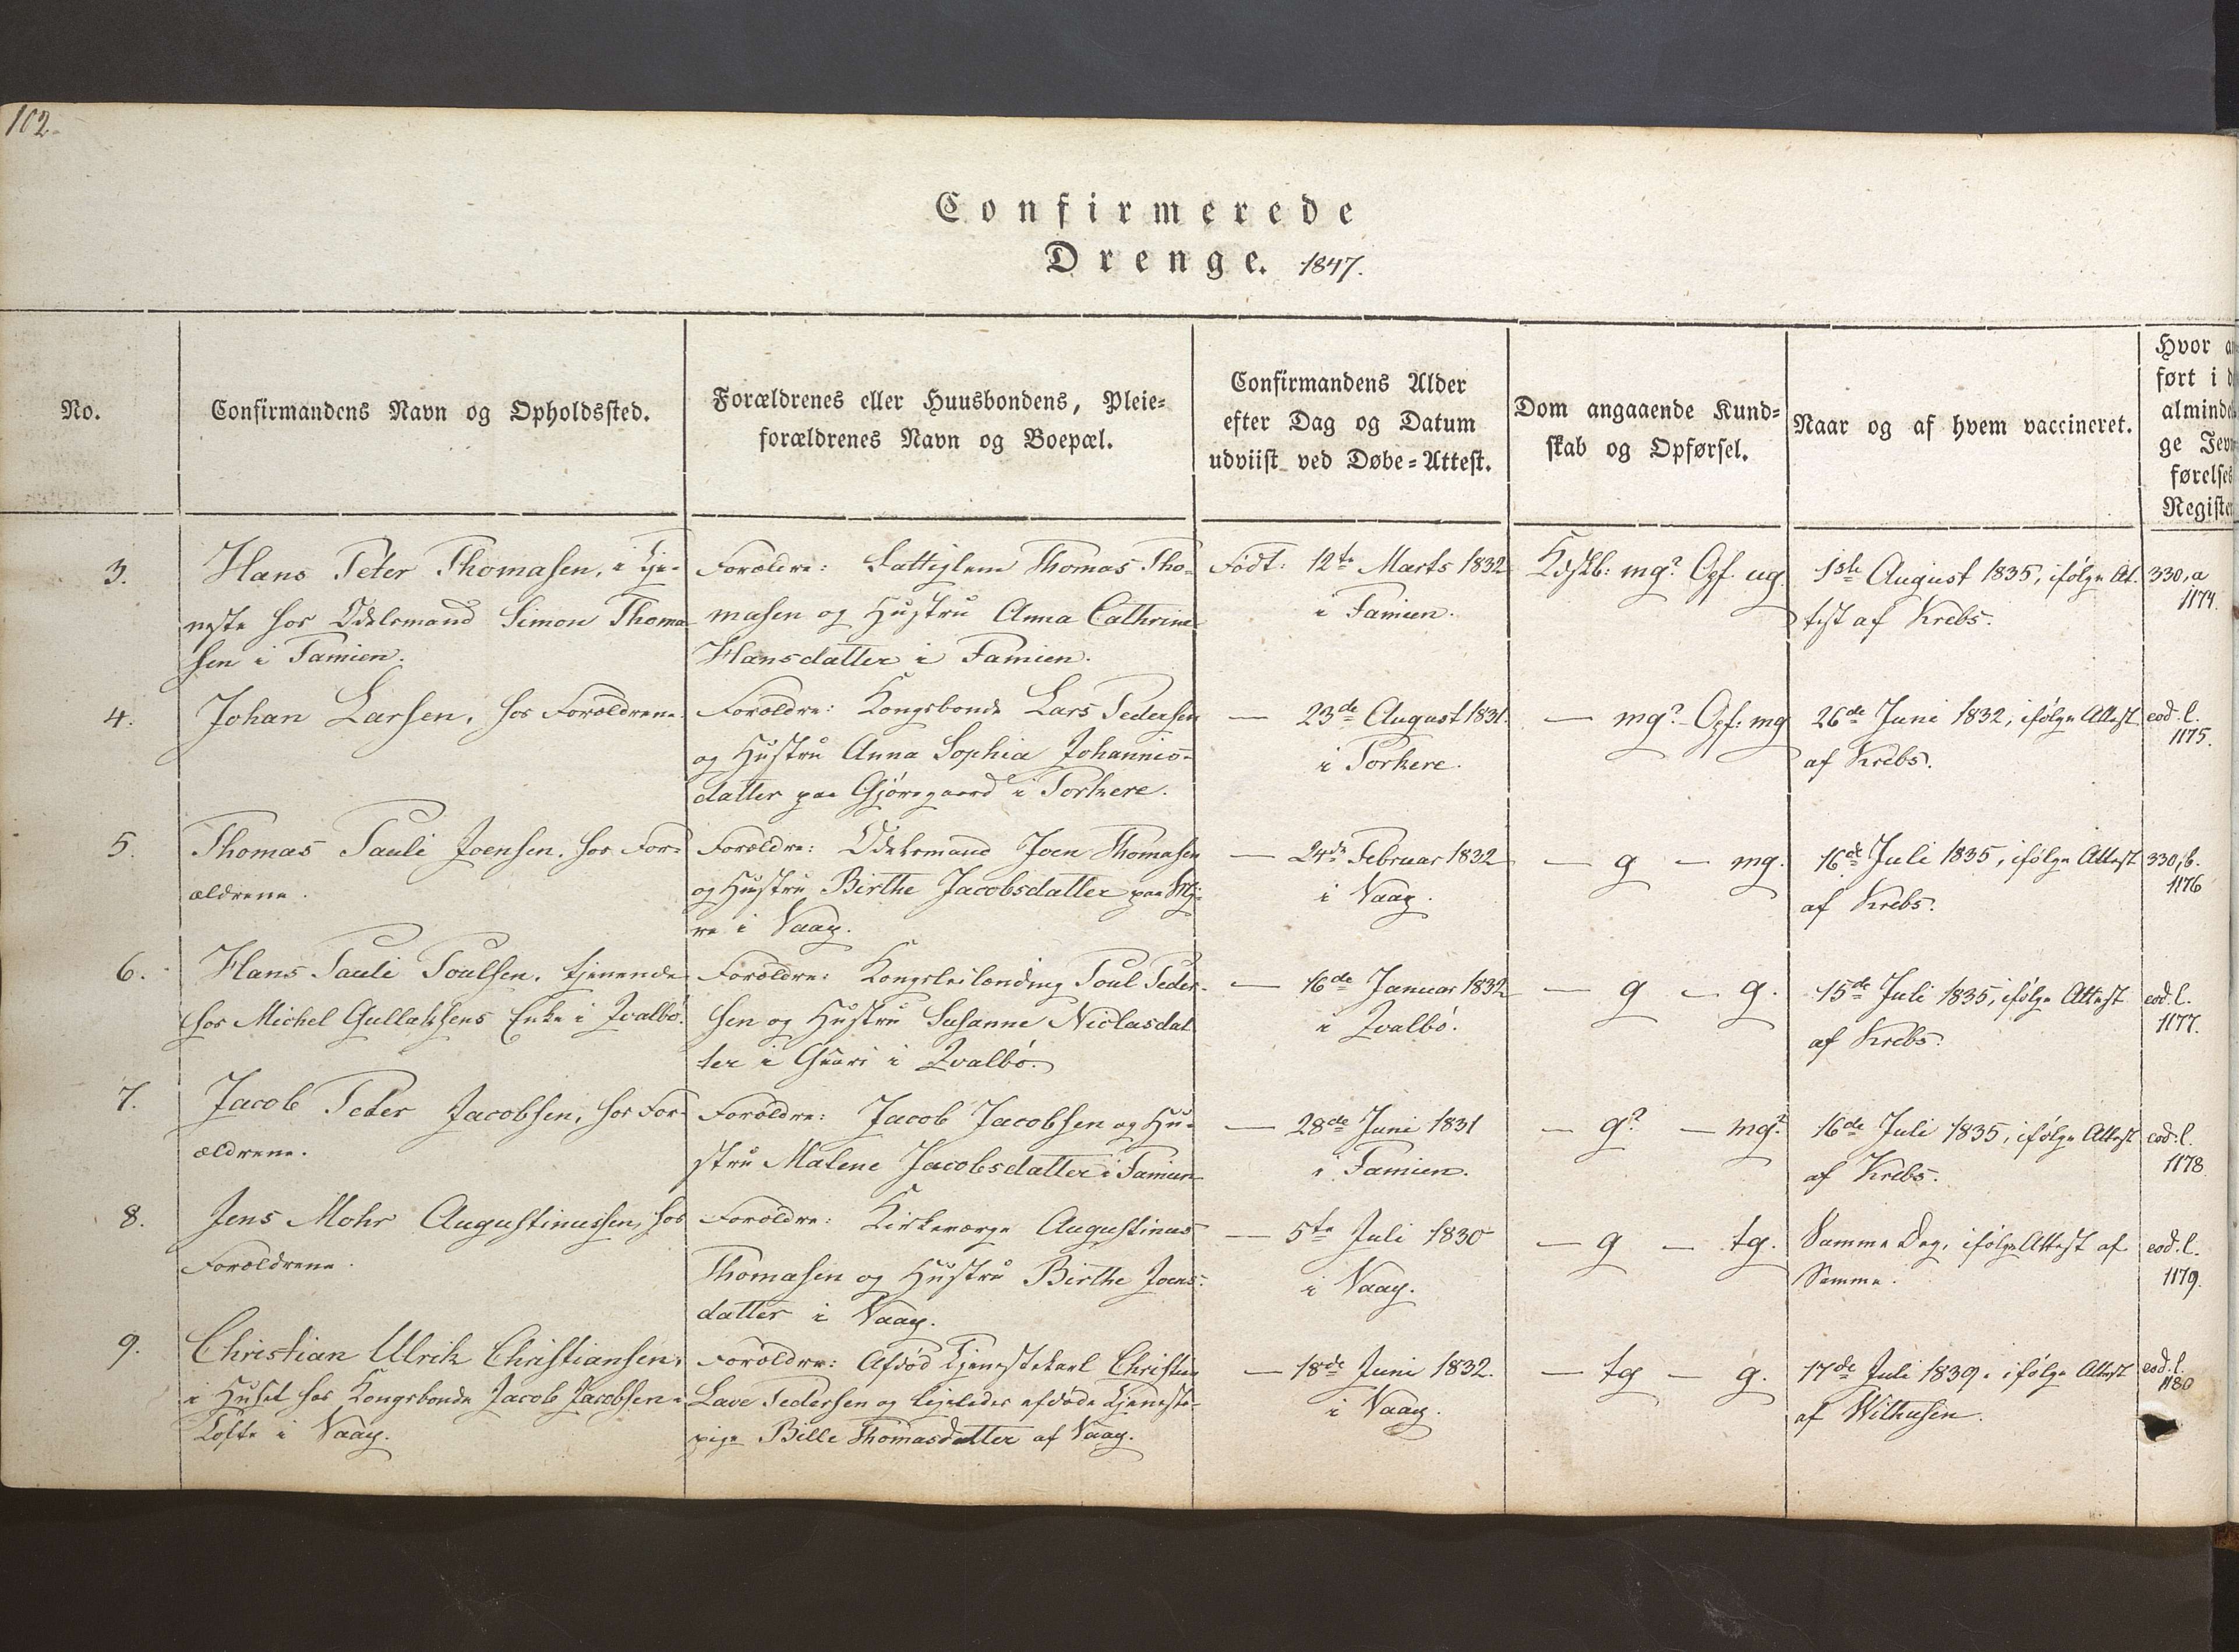 102.
Confirmerede
Drenge. 1847.
No.
Confirmandens Navn og Opholdssted.
Forældrenes eller Huusbondens, Pleie-
forældrenes Navn og Boepæl.
Confirmandens Alder
efter Dag og Datum
udviist ved Døbe-Attest.
Dom angaaende Kund-
skab og Opførsel.
Naar og af hvem vaccineret.
Hvor an-
ført i d
alminde
ge Jev
førelses
Registe
3.
Hans Peter Thomasen, i Tje-
neste hos Odelsmand Simon Thoma
sen i Famien.
Forældre: Fattiglem Thomas Tho-
masen og Hustru Anna Cathrine
Hansdatter i Famien.
Født: 12te Marts 1832
i Famien.
Kdskb: mg? Opf. ug
1ste August 1835, ifølge At-
test af Krebs.
330, a
1174.
4.
Johan Larsen, hos Forældrene.
Forældre: Kongsbonde Lars Pedersen
og Hustru Anna Sophia Johannis-
datter paa Gjøregaard i Porkere.
— 23de August 1831.
i Porkere.
— mg? - Opf: mg
26de Juni 1832, ifølge Attest
af Krebs.
eod. l.
1175.
5.
Thomas Pauli Joensen, hos For-
ældrene.
Forældre: Odelsmand Joen Thomasen
og Hustru Birthe Jacobsdatter paa
re i Vaag.
— 24de Februar 1832
i Vaag.
— g — mg.
16de Juli 1835, ifølge Attest
af Krebs.
330, b.
1176
6.
Hans Pauli Poulsen, tjenende
hos Michel Gullaksens Enke i Qvalbø.
Forældre: Kongsleilænding Poul Peder-
sen og Hustru Susanne Niclasdat
ter i i Qvalbø.
— 16de Januar 1832
i Qvalbø.
— g — g.
15de Juli 1835, ifølge Attest
af Krebs.
eod. l.
1177.
7.
Jacob Peter Jacobsen, hos For-
ældrene.
Forældre: Jacob Jacobsen og Hu-
stru Malene Jacobsdatter i Famien
— 28de Juni 1831
i Famien.
— g? — mg?
16de Juli 1835, ifølge Attest
af Krebs.
eod. l.
1178
8.
Jens Mohr Augustinussen, hos
Forældrene.
Forældre: Kirkeværge Augustinus
Thomasen og Hustru Birthe Joens-
datter i Vaag.
— 5te Juli 1830
i Vaag.
— g — tg.
Samme Dag, ifølge Attest af
Samme.
eod. l.
1179.
9.
Christian Ulrik Christiansen,
i Huset hos Kongsbonde Jacob Jacobsen i
Tofte i Vaag.
Forældre: Afdød Tjenestekarl Christian
Lave Pedersen og ligeledes afdøde Tjeneste-
pige Bille Thomasdatter af Vaag.
— 18de Juni 1832.
i Vaag.
— tg — g.
17de Juli 1839, ifølge Attest
af Wilhusen.
eod. l.
1180